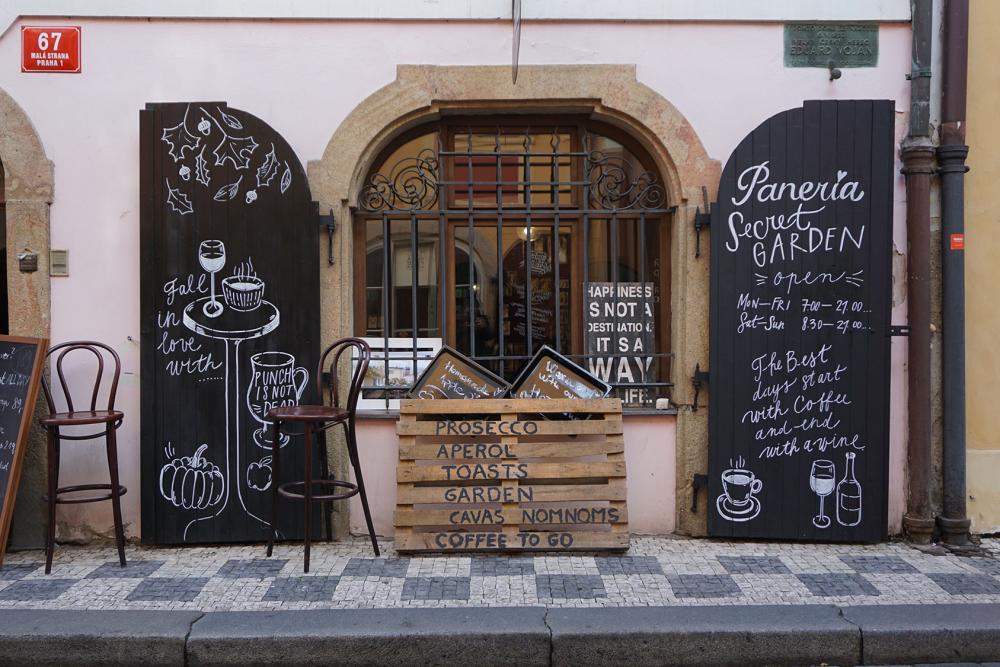 67
MALÁ STRANA
PRAHA 1
EDUARD VOJAN
Fall
in
love
with
......
PUNCH
IS NOT
DEAD
HAPPINESS
IS NOT A
DESTINATION.
IT IS A
WAY
LIFE.
Homemade
PROSECCO
APEROL
TOASTS
GARDEN
CAVAS NOMNOMS
COFFEE TO GO
Paneria
Secret
GARDEN
open
Mon-Fri 7.00-21.00...
Sat-Sun 8.30-21.00...
The Best
days start
with Coffee
and end
with a wine